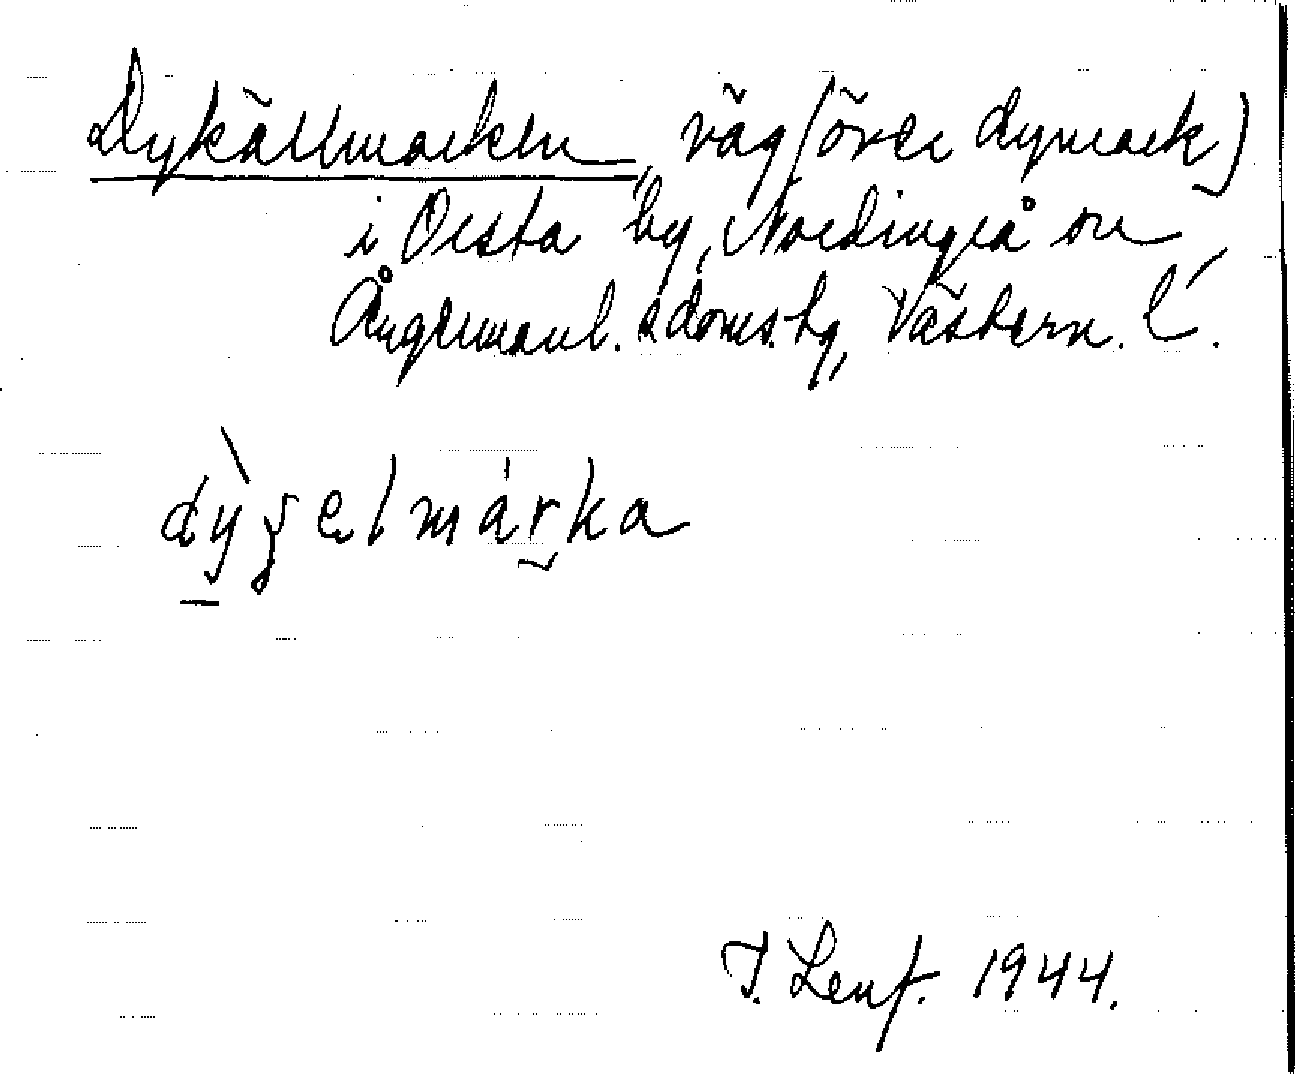 Dykällmarken, väg (över dymark)
i Orsta by, Nordingrå sn,
Ångermanl. s doms. hg, Västern. l.
dỳʒelmarka
T. Lenf. 1944.